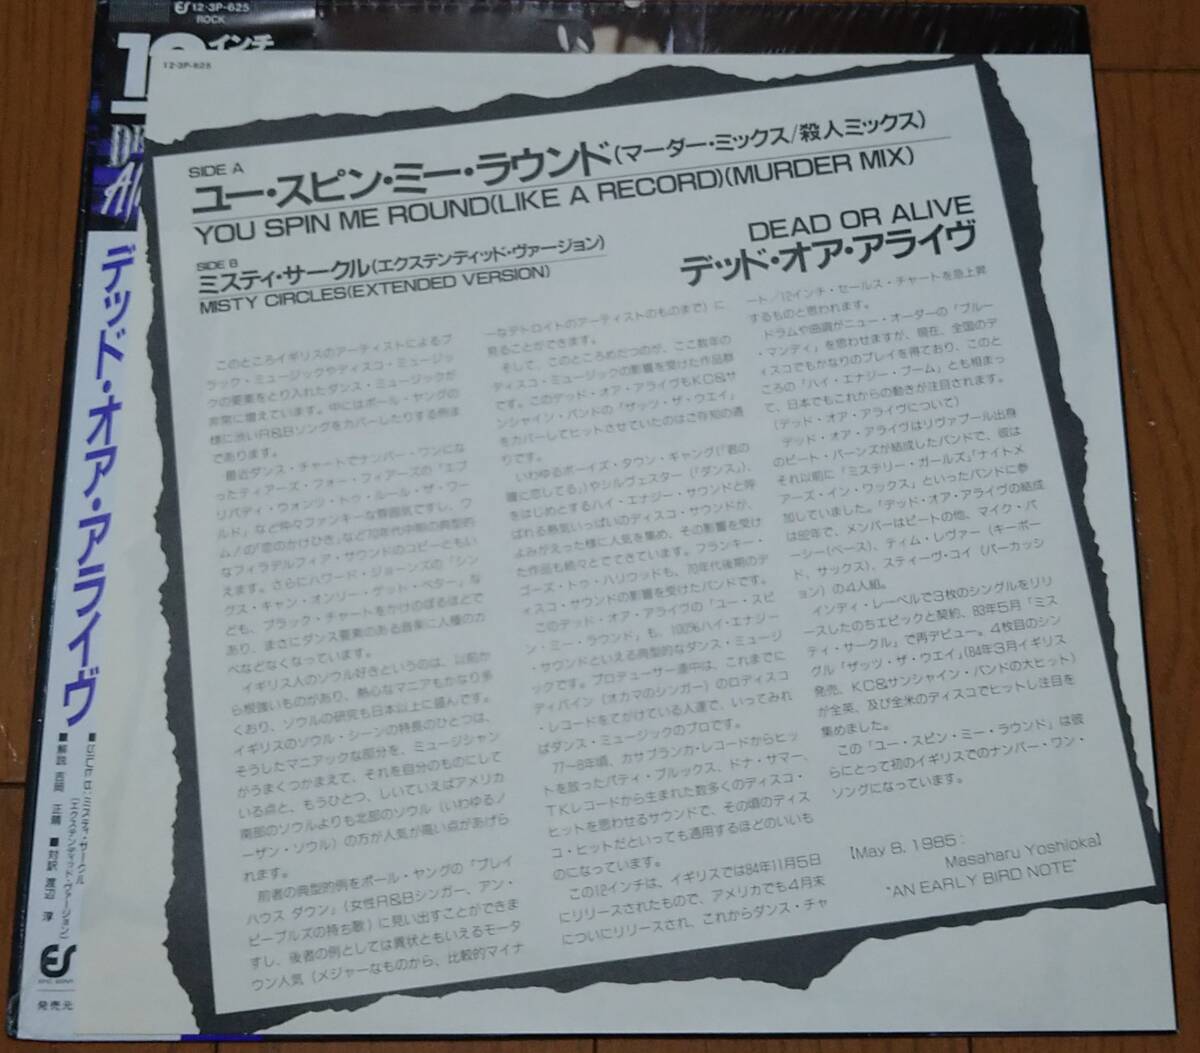 ES 12・3P-625
ROCK
インチ
12・3P-625
SIDE A
ユー・スピン・ミー・ラウンド(マーダー・ミックス/殺人ミックス)
YOU SPIN ME ROUND(LIKE A RECORD)(MURDER MIX)
SIDE B
ミスティ・サークル(エクステンディッド・ヴァージョン)
MISTY CIRCLES(EXTENDED VERSION)
DEAD OR ALIVE
デッド・オア・アライヴ
このところイギリスのアーティストによるブ
ラック・ミュージックやディスコ・ミュージッ
クの要素をとり入れたダンス・ミュージックが
非常に増えています。中にはポール・ヤングの
様に渋いR&Bソングをカバーしたりする例ま
であります。
最近ダンス・チャートでナンバー・ワンにな
ったティアーズ・フォー・フィアーズの「エブ
リバティ・ウォンツ・トゥ・ルール・ザ・ワー
ルド」など仲々ファンキーな雰囲気ですし、ワ
ム!の「恋のかけひき」など70年代中期の典型的
なフィラデルフィア・サウンドのコピーともい
えます。さらにハワード・ジョーンズの「シン
グス・キャン・オンリー・ゲット・ベター」な
ども、ブラック・チャートをかけのぼるほどで
あり、まさにダンス要素のある音楽に人種のカ
ベなどなくなっています。
イギリス人のソウル好きというのは、以前か
ら根強いものがあり、熱心なマニアもかなり多
くおり、ソウルの研究も日本以上に盛んです。
イギリスのソウル・シーンの特長のひとつは、
そうしたマニアックな部分を、ミュージシャン
がうまくつかまえて、それを自分のものにして
いる点と、もうひとつ、しいていえばアメリカ
南部のソウルよりも北部のソウル(いわゆるノ
ーザン・ソウル)の方が人気が高い点があげら
れます。
前者の典型的例をポール・ヤングの「プレイ
ハウス ダウン」(女性R&Bシンガー、アン・
ピーブルズの持ち歌)に見い出すことができま
すし、後者の例としては異状ともいえるモータ
ウン人気(メジャーなものから、比較的マイナ
ーなデトロイトのアーティストのものまで)に
見ることができます。
そして、このところめだつのが、ここ数年の
ディスコ・ミュージックの影響を受けた作品群
です。このデッド・オア・アライヴもKC&サ
ンシャイン・バンドの「ザッツ・ザ・ウエイ」
をカバーしてヒットさせていたのはご存知の通
りです。
いわゆるボーイズ・タウン・ギャング(「君の
瞳に恋してる」)やシルヴェスター(「ダンス」)、
をはじめとするハイ・エナジー・サウンドと呼
ばれる熱気いっぱいのディスコ・サウンドが、
よみがえった様に人気を集め、その影響を受け
た作品も続々とでてきています。フランキー・
ゴーズ・トゥ・ハリウッドも、70年代後期のデ
ィスコ・サウンドの影響を受けたバンドです。
このデッド・オア・アライヴの「ユー・スピ
ン・ミー・ラウンド」も、100%ハイ・エナジー
・サウンドといえる典型的なダンス・ミュージ
ックです。プロデューサー連中は、これまでに
ディバイン(オカマのシンガー)のロディスコ
・レコードをてがけている人達で、いってみれ
ばダンス・ミュージックのプロです。
77〜8年頃、カサブランカ・レコードからヒッ
トを放ったパティ・ブルックス、ドナ・サマー、
TKレコードから生まれた数多くのディスコ・
ヒットを思わせるサウンドで、その頃のディス
コ・ヒットだといっても通用するほどのいいも
のになっています。
この12インチは、イギリスでは84年11月5日
にリリースされたもので、アメリカでも4月末
についにリリースされ、これからダンス・チャ
ート/12インチ・セールス・チャートを急上昇
するものと思われます。
ドラムや曲調がニュー・オーダーの「ブルー
・マンデイ」を思わせますが、現在、全国のデ
ィスコでもかなりのプレイを得ており、このと
ころの「ハイ・エナジー・ブーム」とも相まっ
て、日本でもこれからの動きが注目されます。
(デッド・オア・アライヴについて)
デッド・オア・アライヴはリヴァプール出身
のピート・バーンズが結成したバンドで、彼は
それ以前に「ミステリー・ガールズ」「ナイトメ
アーズ・イン・ワックス」といったバンドに参
加していました。「デッド・オア・アライヴの結成
は82年で、メンバーはピートの他、マイク・パ
ーシー(ベース)、ティム・レヴァー(キーボー
ド、サックス)、スティーヴ・コイ(パーカッシ
ョン)の4人組。
インディ・レーベルで3枚のシングルをリリ
ースしたのちエピックと契約、83年5月「ミス
ティ・サークル」で再デビュー。4枚目のシン
グル「ザッツ・ザ・ウエイ」(84年3月イギリス
発売、KC&サンシャイン・バンドの大ヒット)
が全英、及び全米のディスコでヒットし注目を
集めました。
この「ユー・スピン・ミー・ラウンド」は彼
らにとって初のイギリスでのナンバー・ワン・
ソングになっています。
【May 8, 1985:
Masaharu Yoshioka】
"AN EARLY BIRD NOTE"
デッド・オア・アライヴ
■SIDE B:ミスティ・サークル
(エクステンディッド・ヴァージョン)
■解説 吉岡 正晴 ■対訳 渡辺 淳
ES
発売元